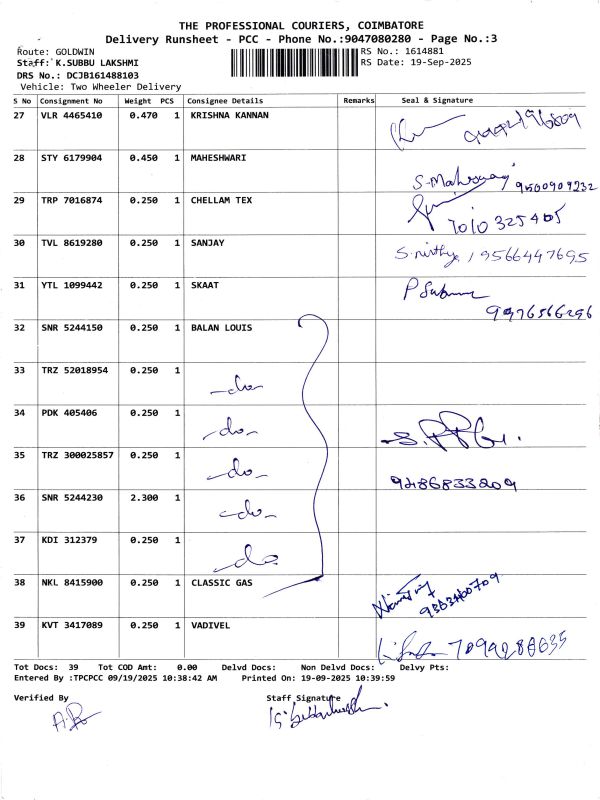 THE PROFESSIONAL COURIERS, COIMBATORE
Delivery Runsheet - PCC - Phone No.:9047080280 - Page No.:3
Route: GOLDWIN RS No.: 1614881
Staff: K.SUBBU LAKSHMI RS Date: 19-Sep-2025
DRS No.: DCJB161488103
Vehicle: Two Wheeler Delivery
S No Consignment No Weight PCS Consignee Details Remarks Seal & Signature
27 VLR 4465410 0.470 1 KRISHNA KANNAN
28 STY 6179904 0.450 1 MAHESHWARI
S-Maheswari 9500909232
29 TRP 7016874 0.250 1 CHELLAM TEX
7010325405
30 TVL 8619280 0.250 1 SANJAY
9566447695
31 YTL 1099442 0.250 1 SKAAT
9976566296
32 SNR 5244150 0.250 1 BALAN LOUIS
33 TRZ 52018954 0.250 1
-do-
34 PDK 405406 0.250 1
-do-
35 TRZ 300025857 0.250 1
-do- 9486833209
36 SNR 5244230 2.300 1
-do-
37 KDI 312379 0.250 1
-do-
38 NKL 8415900 0.250 1 CLASSIC GAS
39 KVT 3417089 0.250 1 VADIVEL
Tot Docs: 39 Tot COD Amt: 0.00 Delvd Docs: Non Delvd Docs: Delvy Pts:
Entered By :TPCPCC 09/19/2025 10:38:42 AM Printed On: 19-09-2025 10:39:59
Verified By Staff Signature